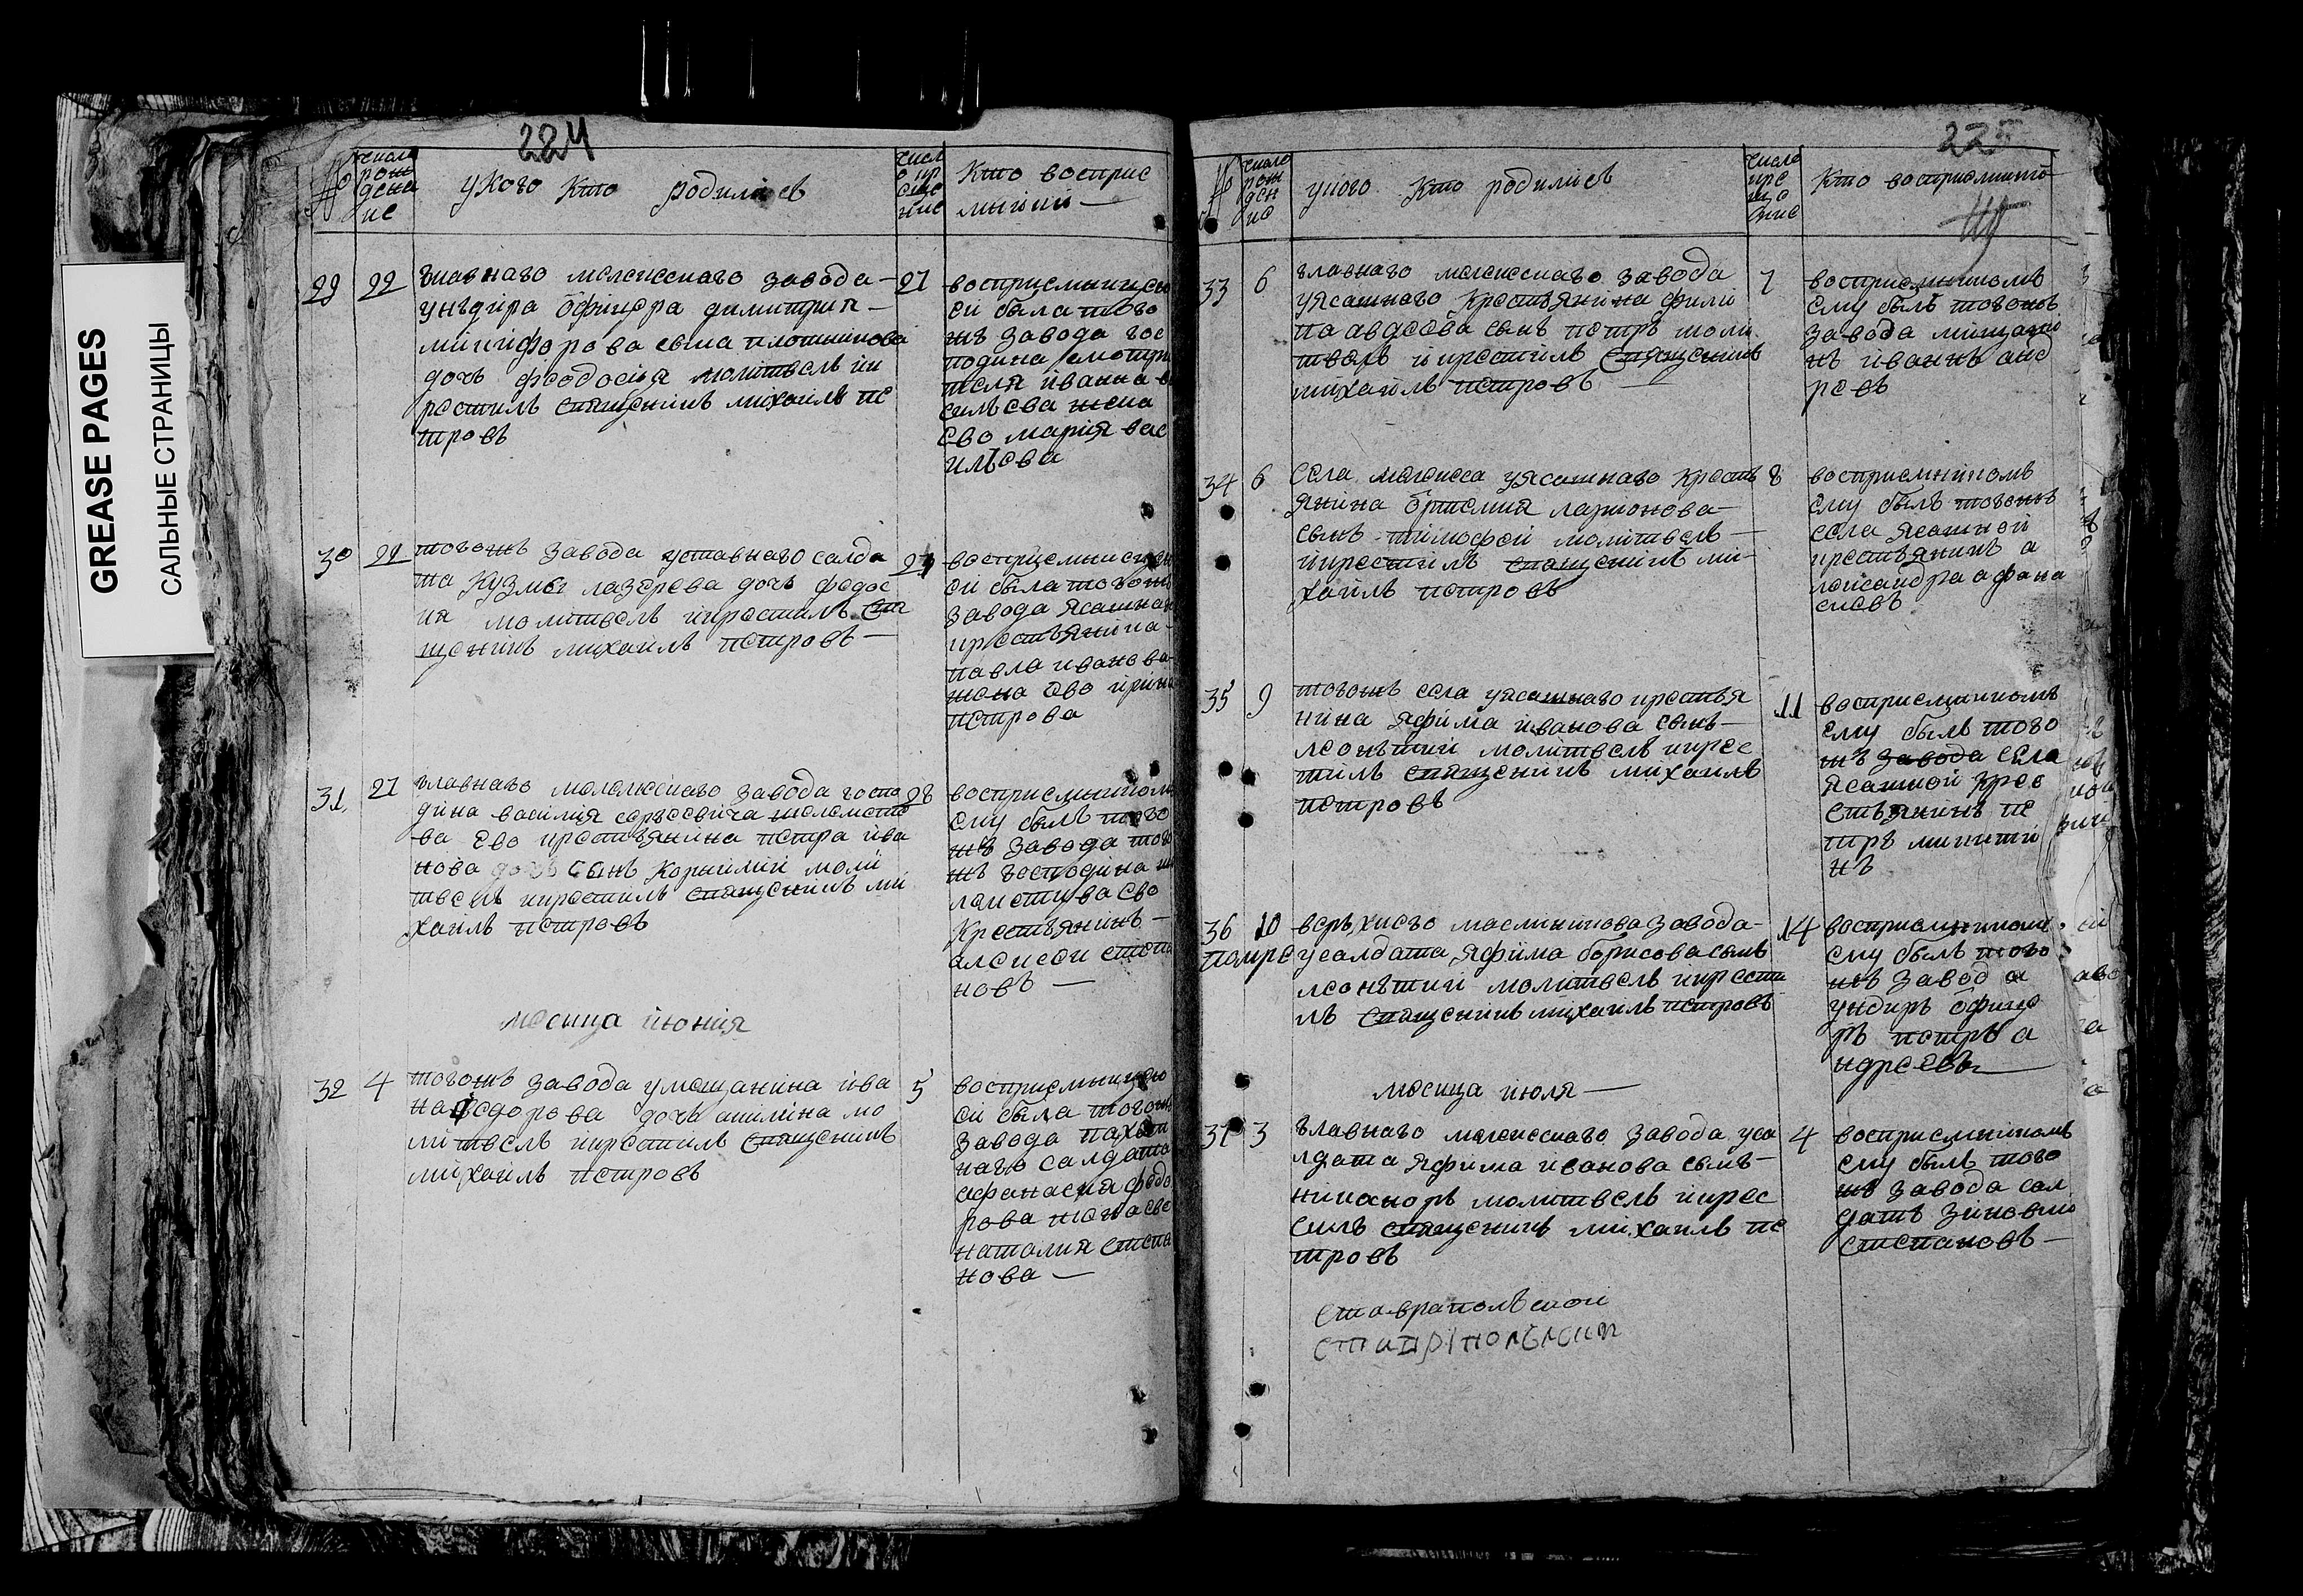 GREASE PAGES
САЛЬНЫЕ СТРАНИЦЫ
224
№ число рождение
у кого кто родились
число крщение
кто восприемники
29 22
главнаго мелекесскаго завода
ундира офицера димитрия
никифорова сына плотникова
дочь феодосия молитвелъ и к
рестилъ священикъ михаилъ пе
тровъ
27
восприемницею
ей была того
жъ завода гос
подина смотри
теля ивана ва
сильева жена
ево мария вас
ильева
30
тогожъ завода уставнаго салда
та кузмы лазерева дочь федос
ия молитвелъ икрестилъ свя
щеникъ михаилъ петровъ
восприемницею
ей была тогожъ
завода ясашнаго
крестьянина
павла иванова
жена ево ирина
петрова
31 27
главнаго мелекесскаго завода госпо
дина василия
ва ево крестьянина петра ива
нова сынъ корнилий моли
твелъ икрестилъ священикъ ми
хаилъ петровъ
28
восприемникомъ
ему былъ того
жъ завода того
жъ господина
ево
крестьянинъ
алексеи степа
новъ
месица июния
32 4
тогожъ завода умещанина ива
на федорова дочь акилина мо
литвелъ икрестилъ священикъ
михаилъ петровъ
5
восприемницею
ей была тогожъ
завода пахат
наго салдата
афанасия федо
рова жена ево
наталия степа
нова
225
№ число рождение
у кого кто родились
число крещение
кто восприемники
33 6
главнаго мелекесскаго завода
уясашнаго крестьянина фили
па авдеева сынъ петръ моли
твелъ икрестилъ священикъ
михаилъ петровъ
7
восприемникомъ
ему былъ тогожъ
завода мищани
нъ иванъ анд
реевъ
34 6
села мелекесса уясашнаго кресть
янина артемия ларионова
сынъ тимофей молитвелъ
икрестилъ священикъ ми
хаилъ петровъ
8
восприемникомъ
ему былъ тогожъ
села ясашной
крестьянинъ а
лександра афана
сиевъ
35 9
тогожъ села уясашнаго крестья
нина яфима иванова сынъ
леонътий молитвелъ икрес
тилъ священикъ михаилъ
петровъ
11
восприемникомъ
ему былъ того
жъ завода села
ясашной крес
стьянинъ пе
тръ никити
нъ
36 10
помре
верьхнево масленикова завода
усалдата яфима борисова сынъ
леонътий молитвелъ икрести
лъ священикъ михаилъ петровъ
14
восприемникомъ
ему былъ того
жъ завода
ундиръ офице
ръ петръ а
ндреевъ
месица июля
37 3
главнаго мелекесскаго завода уса
лдата яфима иванова сынъ
никаноръ молитвелъ икрес
тилъ священикъ михаилъ пе
тровъ
4
восприемникомъ
ему былъ того
жъ завода сал
датъ зиновий
степановъ
ставрапольской